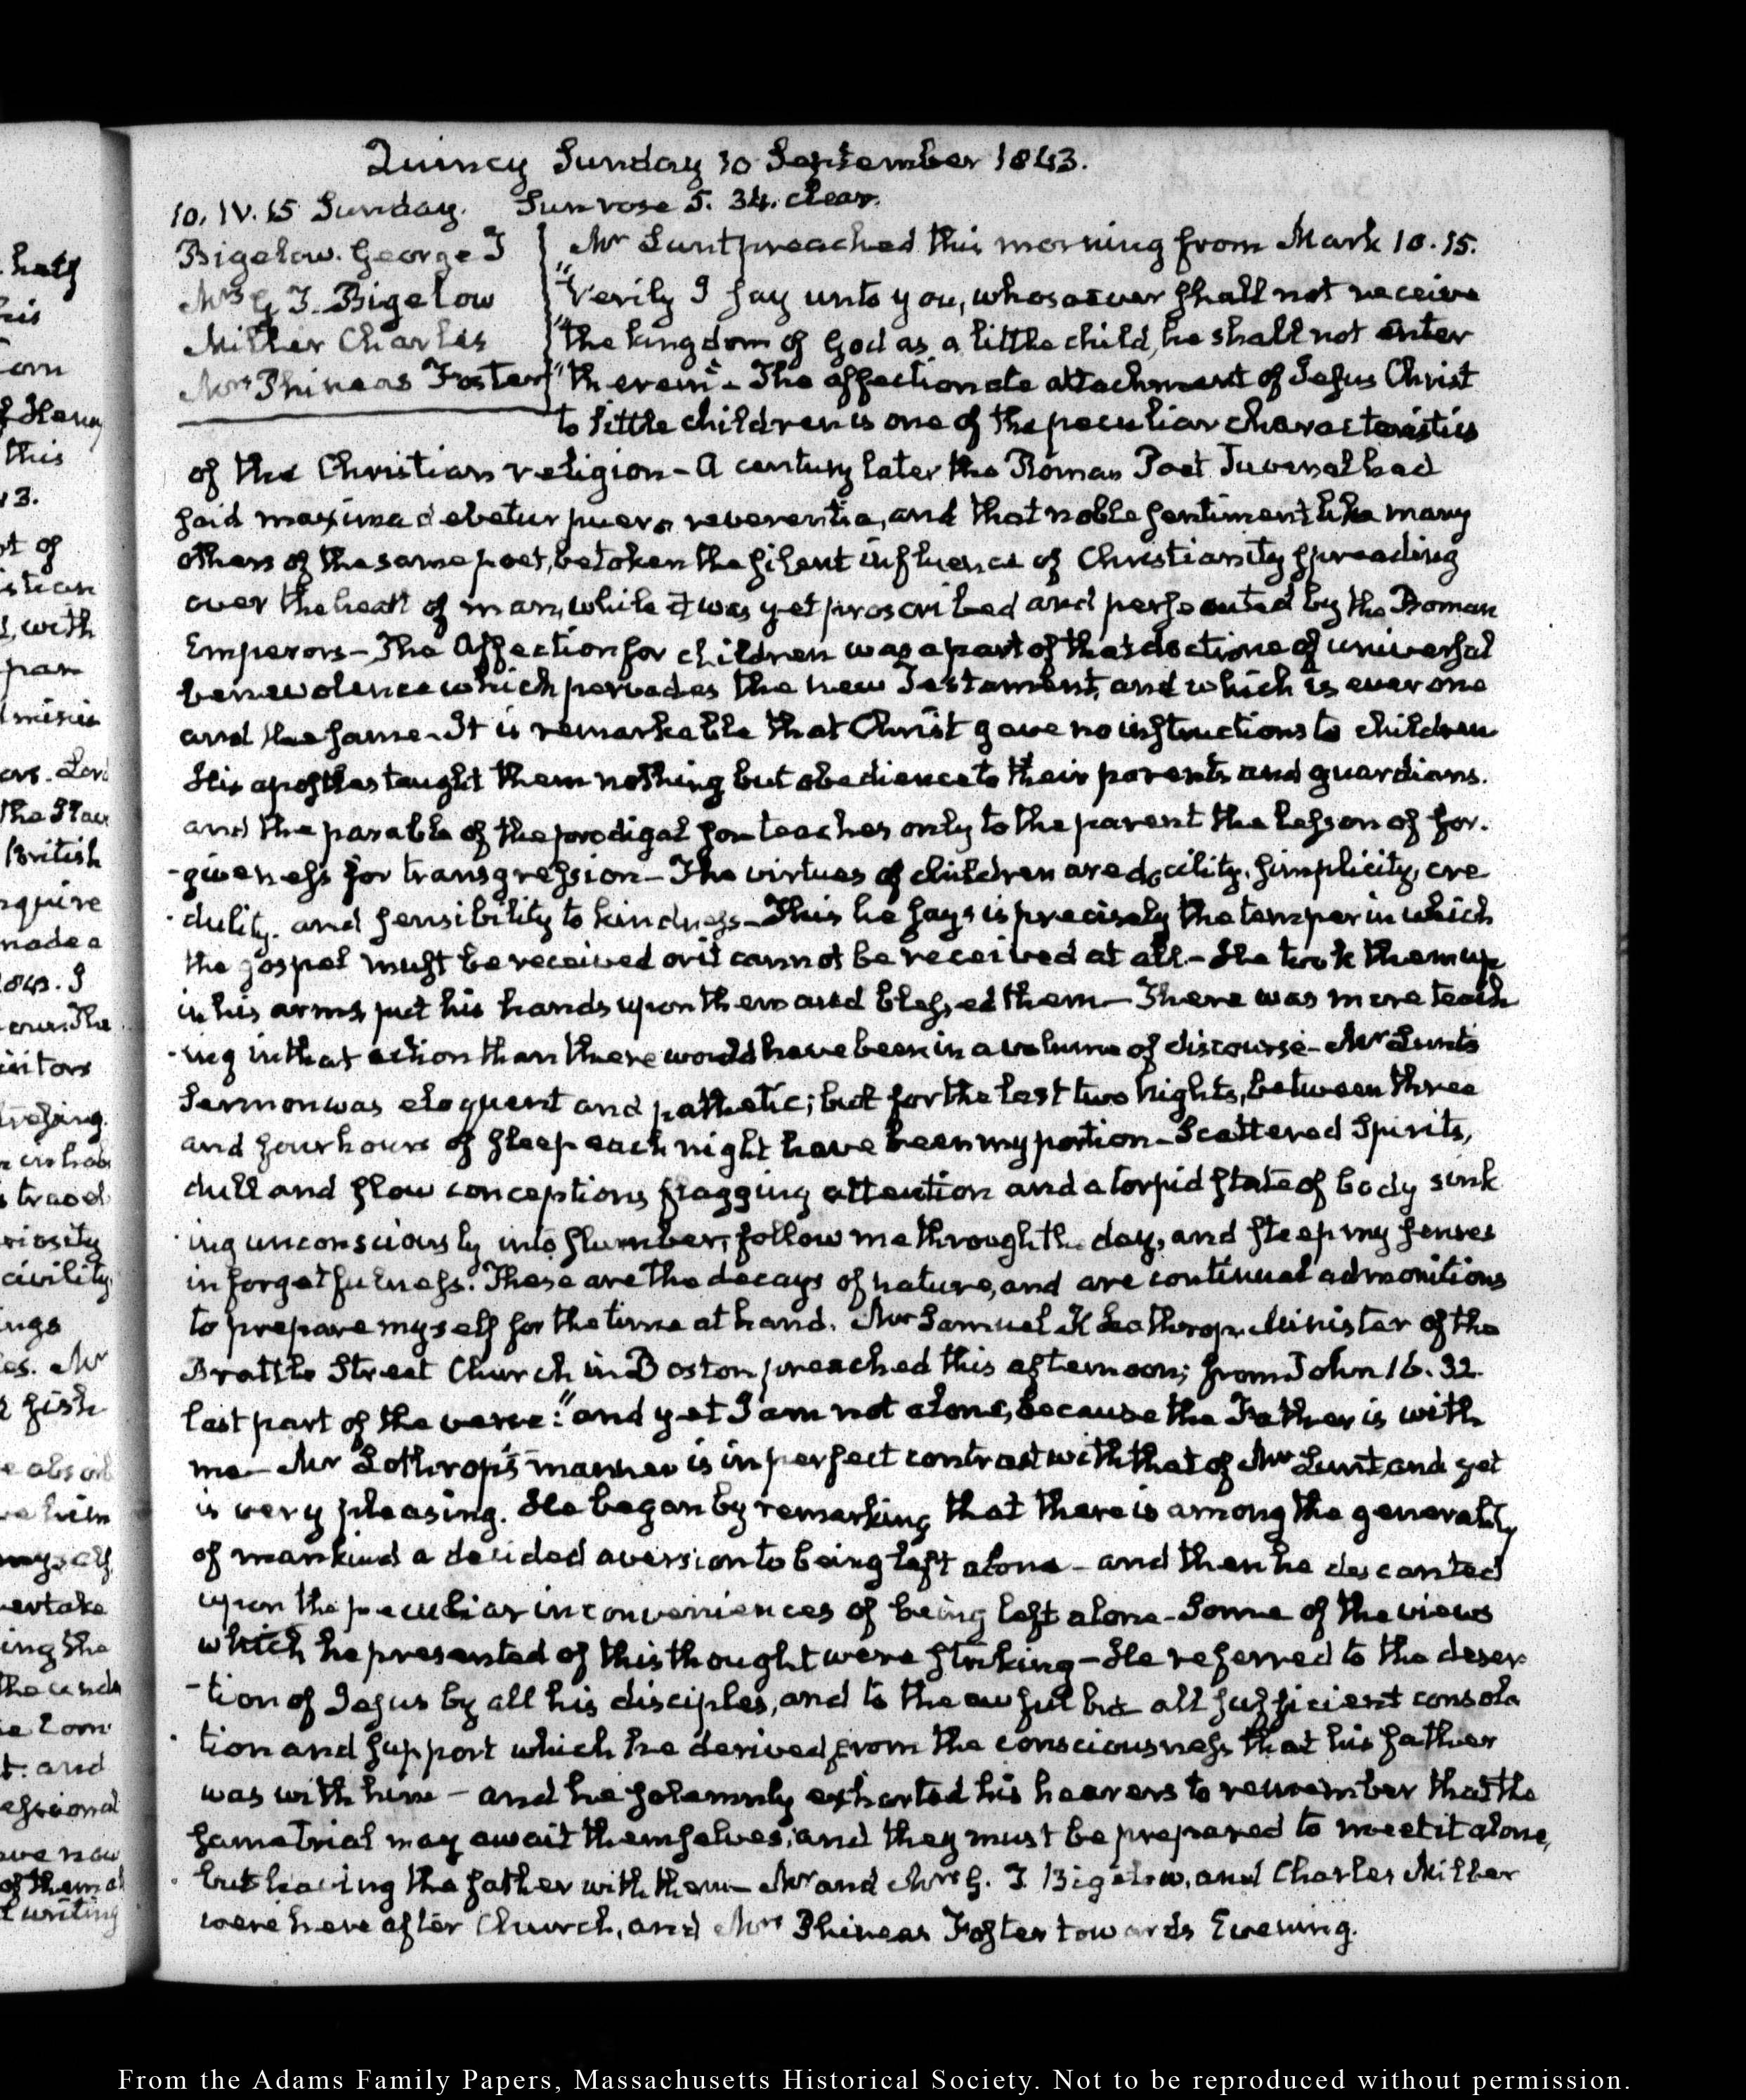 Quincy Sunday 10 September 1843.
10. IV. 15 Sunday. Sun rose 5. 34. clear.
Bigelow. George T
Mrs G T. Bigelow
Miller Charles
Mrs Phineas Foster
Mr Lunt preached this morning from Mark 10. 15.
"Verily I say unto you, whosoever shall not receive
"the kingdom of God as a little child, he shall not enter
"therein" - The affectionate attachment of Jesus Christ
to little children is one of the peculiar characteristics
of the Christian religion - A century later the Roman Poet Juvenal had
said maxima debetur puero reverentia, and that noble sentiment like many
others of the same poet, betoken the silent influence of Christianity spreading
over the heart of man, while it was yet proscribed and persecuted by the Roman
Emperors - The Affection for children was a part of that doctrine of universal
benevolence which pervades the new Testament, and which is ever one
and the same - It is remarkable that Christ gave no instructions to children
His apostles taught them nothing but obedience to their parents and guardians.
and the parable of the prodigal son teaches only to the parent the lesson of for-
-giveness for transgression - The virtues of children are docility, simplicity, cre
-dulity. and sensibility to kindness - This he says is precisely the temper in which
the gospel must be received or it cannot be received at all - He took them up
in his arms, put his hands upon them and blessed them - There was more teach
-ing in that action than there would have been in a volume of discourse - Mr Lunt's
Sermon was eloquent and pathetic; but for the last two nights, between three
and four hours of sleep each night have been my portion - Scattered Spirits,
dull and slow conceptions flagging attention and a torpid state of body sink
-ing unconsciously into slumber, follow me through the day, and steep my senses
in forgetfulness. These are the decays of nature, and are continual admonitions
to prepare myself for the time at hand. Mr Samuel K Leathrop. Minister of the
Brattle Street Church in Boston preached this afternoon; from John 16. 32.
last part of the verse: "and yet I am not alone, because the Father is with
me - Mr Lothrop's manner is in perfect contrast with that of Mr Lunt, and yet
is very pleasing. He began by remarking that there is among the generality
of mankind a decided aversion to being left alone - and then he descanted
upon the peculiar inconveniences of being left alone - Some of the views
which he presented of this thought were striking - He referred to the deser
-tion of Jesus by all his disciples, and to the awful but all sufficient consola
-tion and support which he derived from the consciousness that his father
was with him - and he solemnly exhorted his hearers to remember that the
same trial may await themselves; and they must be prepared to meet it alone,
but having the father with them - Mr and Mrs G. T. Bigelow, and Charles Miller
were here after Church, and Mrs Phineas Foster towards Evening.
From the Adams Family Papers, Massachusetts Historical Society. Not to be reproduced without permission.